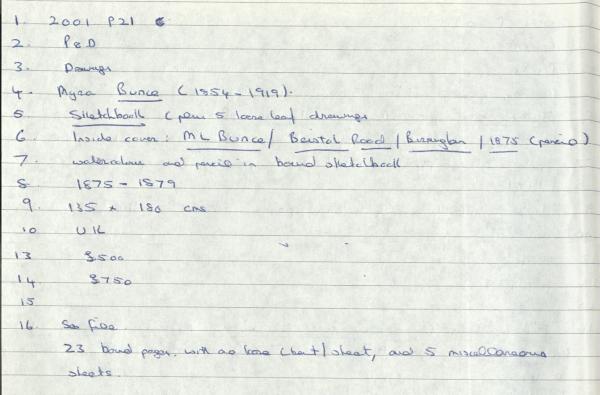 1. 2001 P21
2. P&D
3. Drawings
4. Myra Bunce (1854-1919).
5 Sketchbook (plus 5 loose leaf drawings
6 Inside cover: ML Bunce/ Bristol Road / Birmingham / 1875 (pencil)
7. watercolour and pencil in bound sketchbook
8 1875 - 1879
9. 135 x 180 cms
10 UK
13 £500
14 £750
15
16. See file.
23 bound pages, with one loose (bent/ sheet, and 5 miscellaneous
sheets.